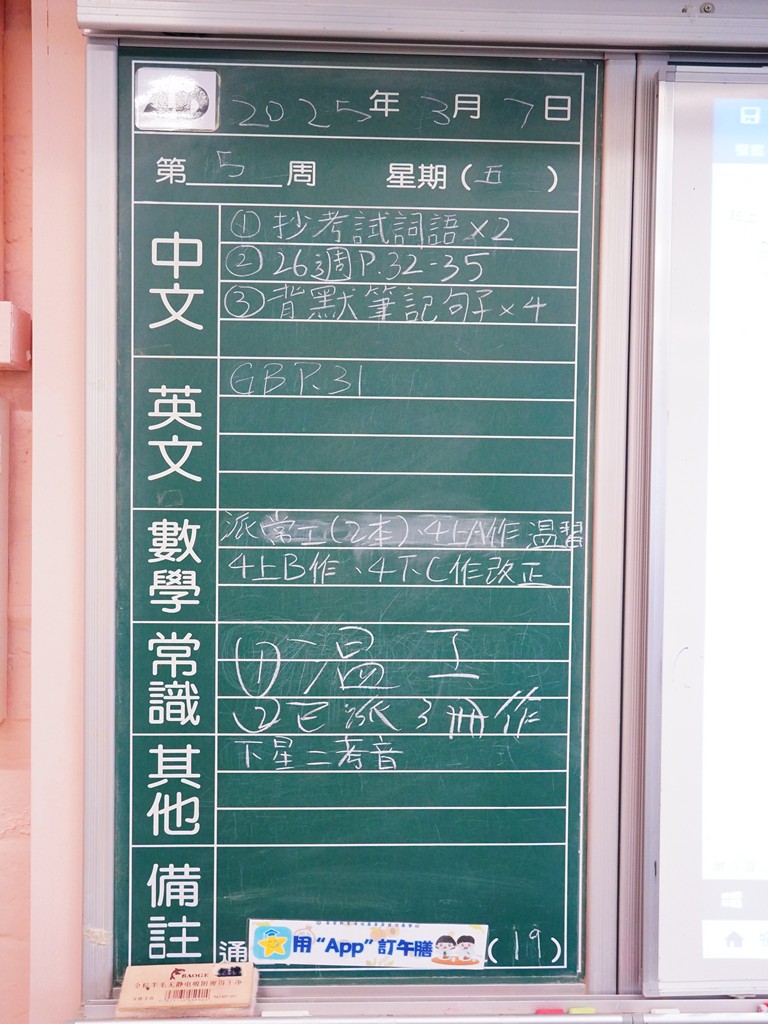 2025年3月7日
第5周 星期(五)
中文
①抄考試詞語×2
②26週P.32-35
③背默筆記句子×4
英文
GB P.31
數學
派常工(2本)、4上A作 温習
4上B作、4下C作改正
常識
①温工
②已派3冊作
其他
下星二考音
備註
通
用“App”訂午膳
(19)
BAOGE